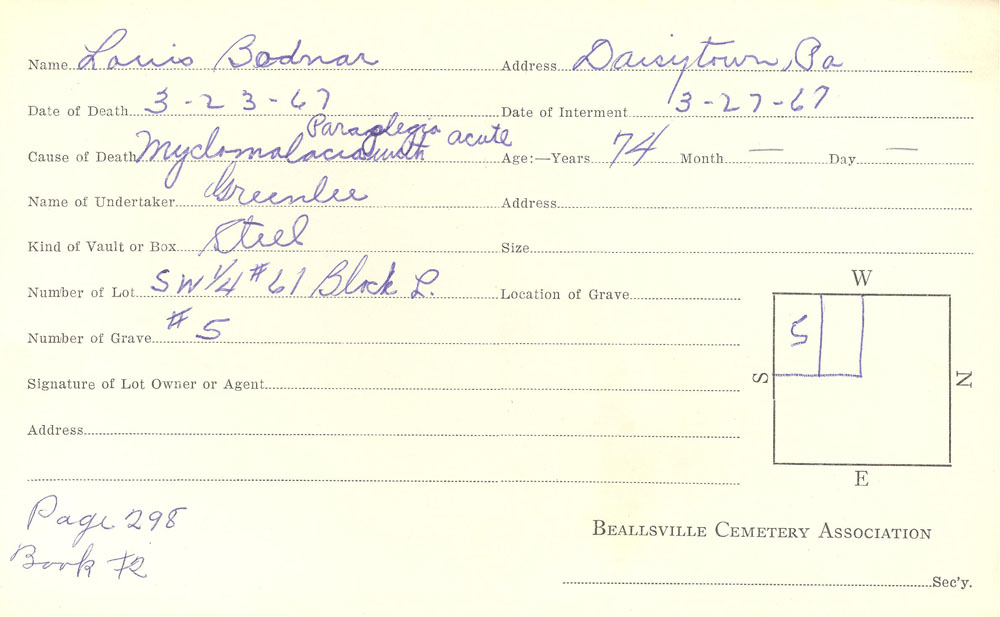 Name Louis Bodnar Address Daisytown, Pa
Date of Death 3-23-67 Date of Interment 3-27-67
Paraplegia acute
Cause of Death Myclomalacia with Age:—Years 74 Month — Day —
Name of Undertaker Greenlee Address
Kind of Vault or Box Steel Size
Number of Lot SW 1/4 #61 Block L. Location of Grave
W
Number of Grave #5
5
S N
Signature of Lot Owner or Agent
Address
E
Page 298
Book #2
BEALLSVILLE CEMETERY ASSOCIATION
Sec'y.